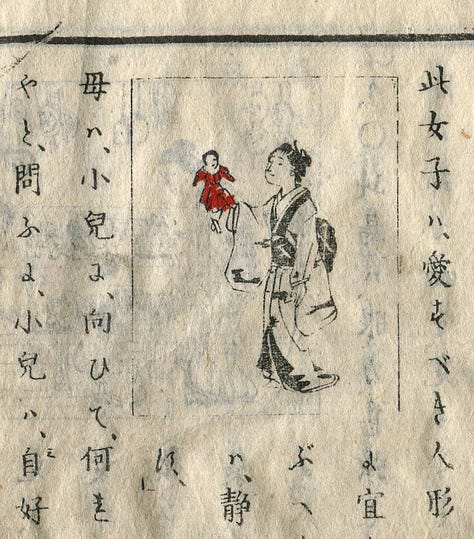 此女子ハ、愛すべき人形
に宜
ぶへ
ハ、静
母ハ、小兒に、向ひて、何を
やと、問ふに、小兒ハ、自好